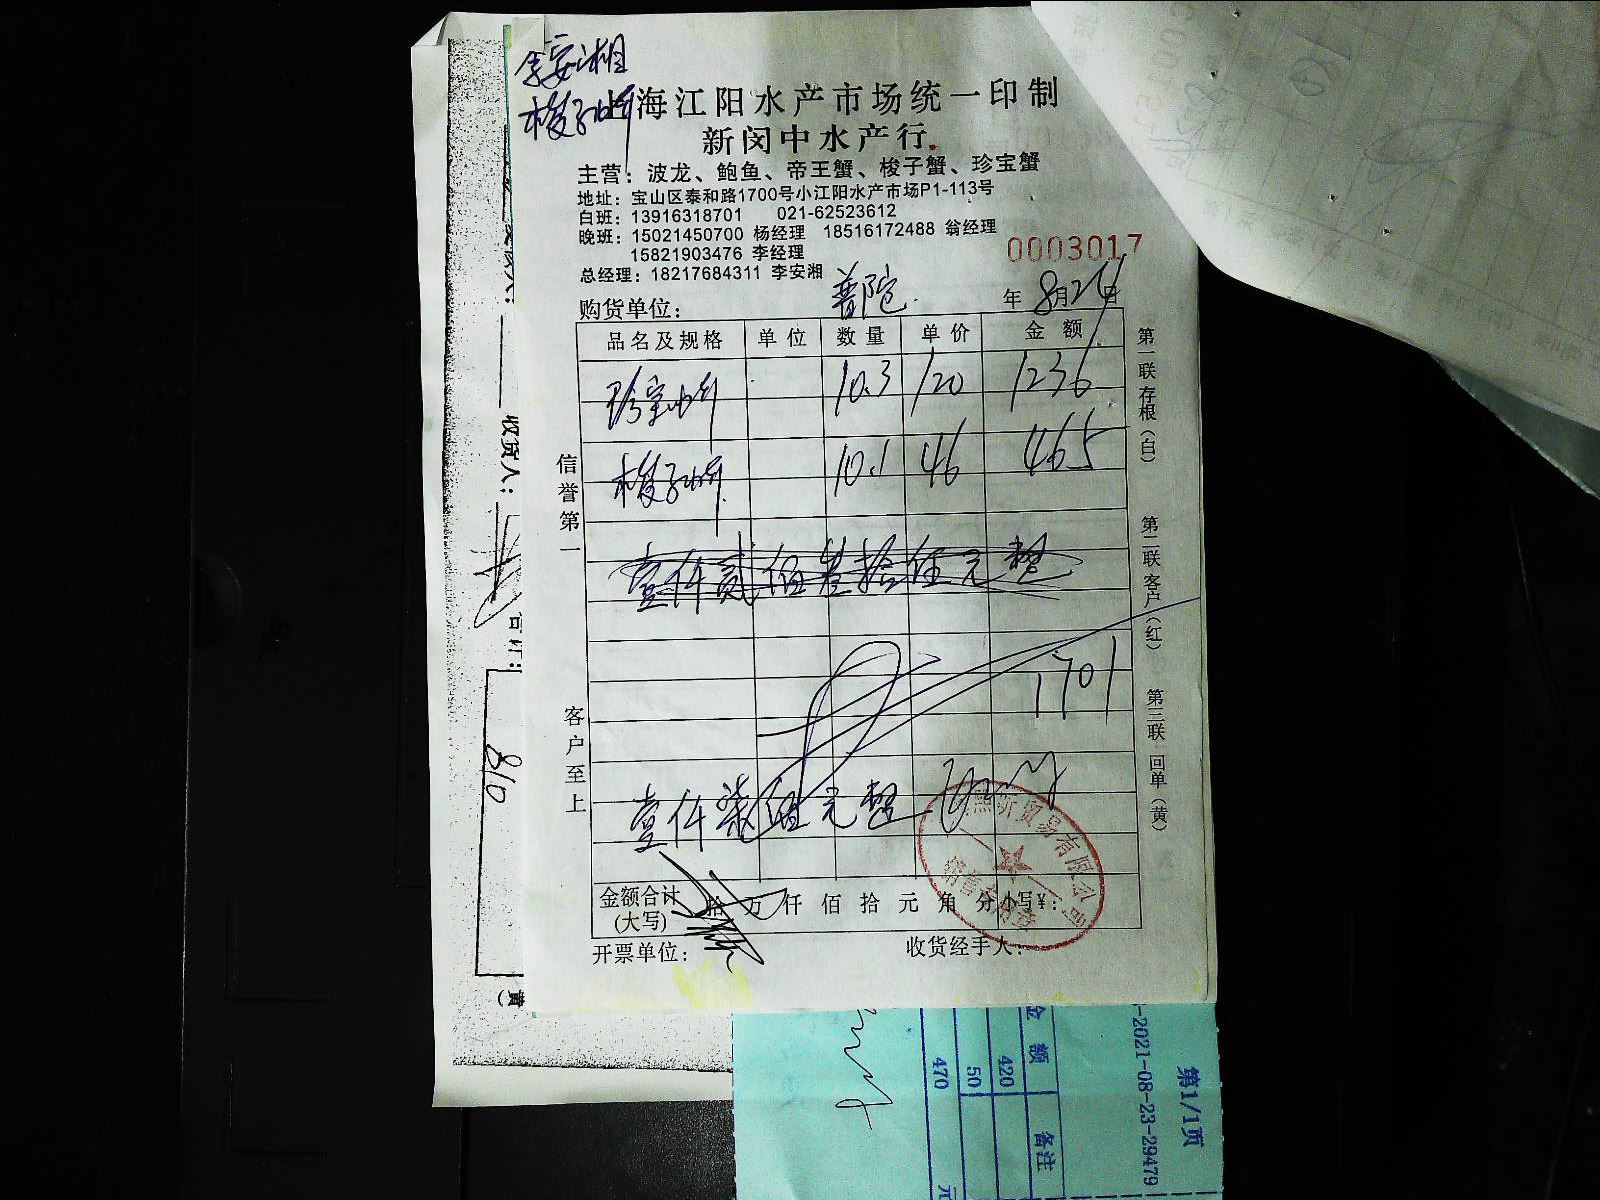 李安湘
梭子蟹
上海江阳水产市场统一印制
新闵中水产行
主营：波龙、鲍鱼、帝王蟹、梭子蟹、珍宝蟹
地址：宝山区泰和路1700号小江阳水产市场P1-113号
白班：13916318701 021-62523612
晚班：15021450700 杨经理 18516172488 翁经理
15821903476 李经理
总经理：18217684311 李安湘
0003017
购货单位： 普陀 年 8月26日
品名及规格 单位 数量 单价 金额
珍宝蟹 10.3 120 1236
梭子蟹 10.1 46 465
壹仟贰佰叁拾伍元整
1701
壹仟柒佰元整
金额合计(大写) 拾 万 仟 佰 拾 元 角 分 小写¥：
开票单位： 收货经手人：
信誉第一
客户至上
第一联 存根（白）
第二联 客户（红）
第三联 回单（黄）
贸易有限公司
收货人：
合计：
810
黄）
金额 备注
420
50
470 元
-2021-08-23-29479
第1/1页